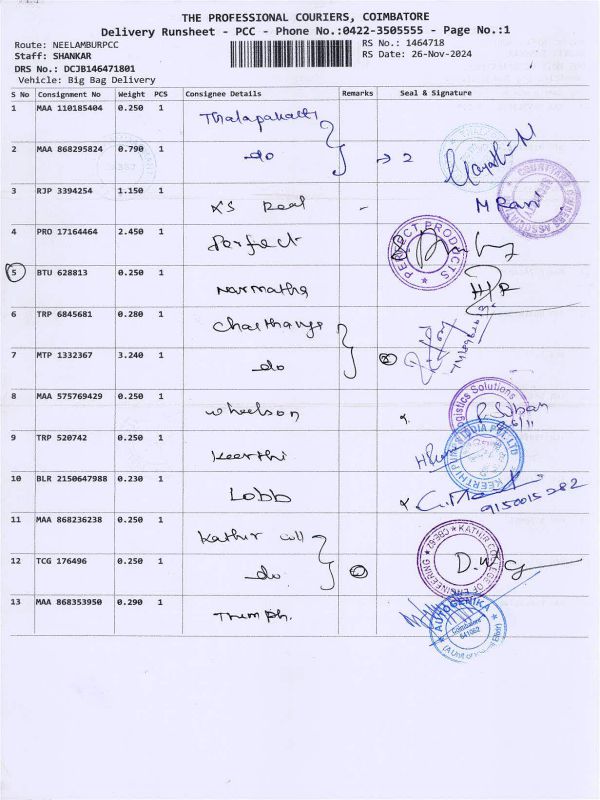 THE PROFESSIONAL COURIERS, COIMBATORE
Delivery Runsheet - PCC - Phone No.:0422-3505555 - Page No.:1
Route: NEELAMBURPCC
RS No.: 1464718
Staff: SHANKAR
RS Date: 26-Nov-2024
DRS No.: DCJB146471801
Vehicle: Big Bag Delivery
S No Consignment No Weight PCS Consignee Details Remarks Seal & Signature
1 MAA 110185404 0.250 1 Thalapakatti
2 MAA 868295824 0.790 1 -do → 2
3 RJP 3394254 1.150 1 KS Real - M Rani
4 PRO 17164464 2.450 1 Perfect PERFECT PRODUCTS
5 BTU 628813 0.250 1 Narmatha
6 TRP 6845681 0.280 1
7 MTP 1332367 3.240 1 -do 2
8 MAA 575769429 0.250 1 Wheelson Logistics Solutions
9 TRP 520742 0.250 1 Keerthi KEERTHI PUMPS INDIA PVT. LTD
10 BLR 2150647988 0.230 1 Lobb 9150015282
11 MAA 868236238 0.250 1 Kathir coll KATHIR COLLEGE OF ENGINEERING
12 TCG 176496 0.250 1 -do
13 MAA 868353950 0.290 1 AUTOGENIKA
Coimbatore
641062